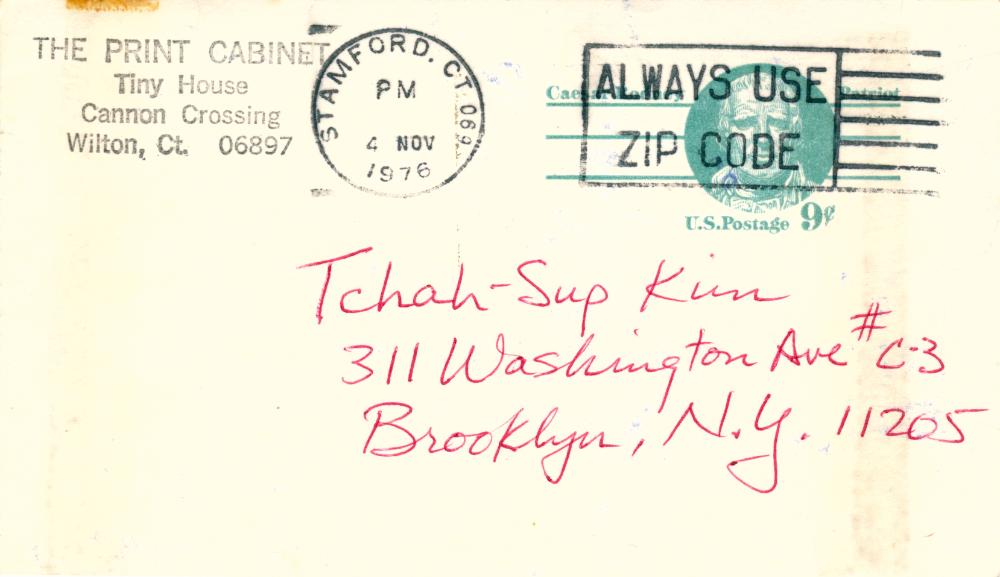 THE PRINT CABINET
Tiny House
Cannon Crossing
Wilton, Ct. 06897
STAMFORD, CT 069
PM
4 NOV
1976
ALWAYS USE
ZIP CODE
Caesar Rodney Patriot
U.S.Postage 9¢
Tchah-Sup Kim
311 Washington Ave # C-3
Brooklyn, N.Y. 11205